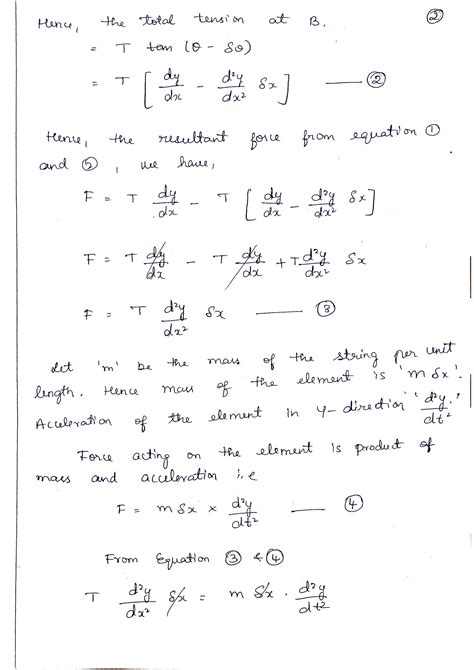 ②
Hence, the total tension at B.
= T tan (θ - δθ)
= T [ dy/dx - d²y/dx² δx ] —— ②
Hence, the resultant force from equation ①
and ②, we have,
F = T dy/dx - T [ dy/dx - d²y/dx² δx ]
F = T dy/dx - T dy/dx + T d²y/dx² δx
F = T d²y/dx² δx —— ③
Let 'm' be the mass of the string per unit
length. Hence mass of the element is 'm δx'.
Acceleration of the element in Y-direction 'd²y/dt².'
Force acting on the element is product of
mass and acceleration i.e
F = m δx × d²y/dt² —— ④
From Equation ③ & ④
T d²y/dx² δx = m δx . d²y/dt²